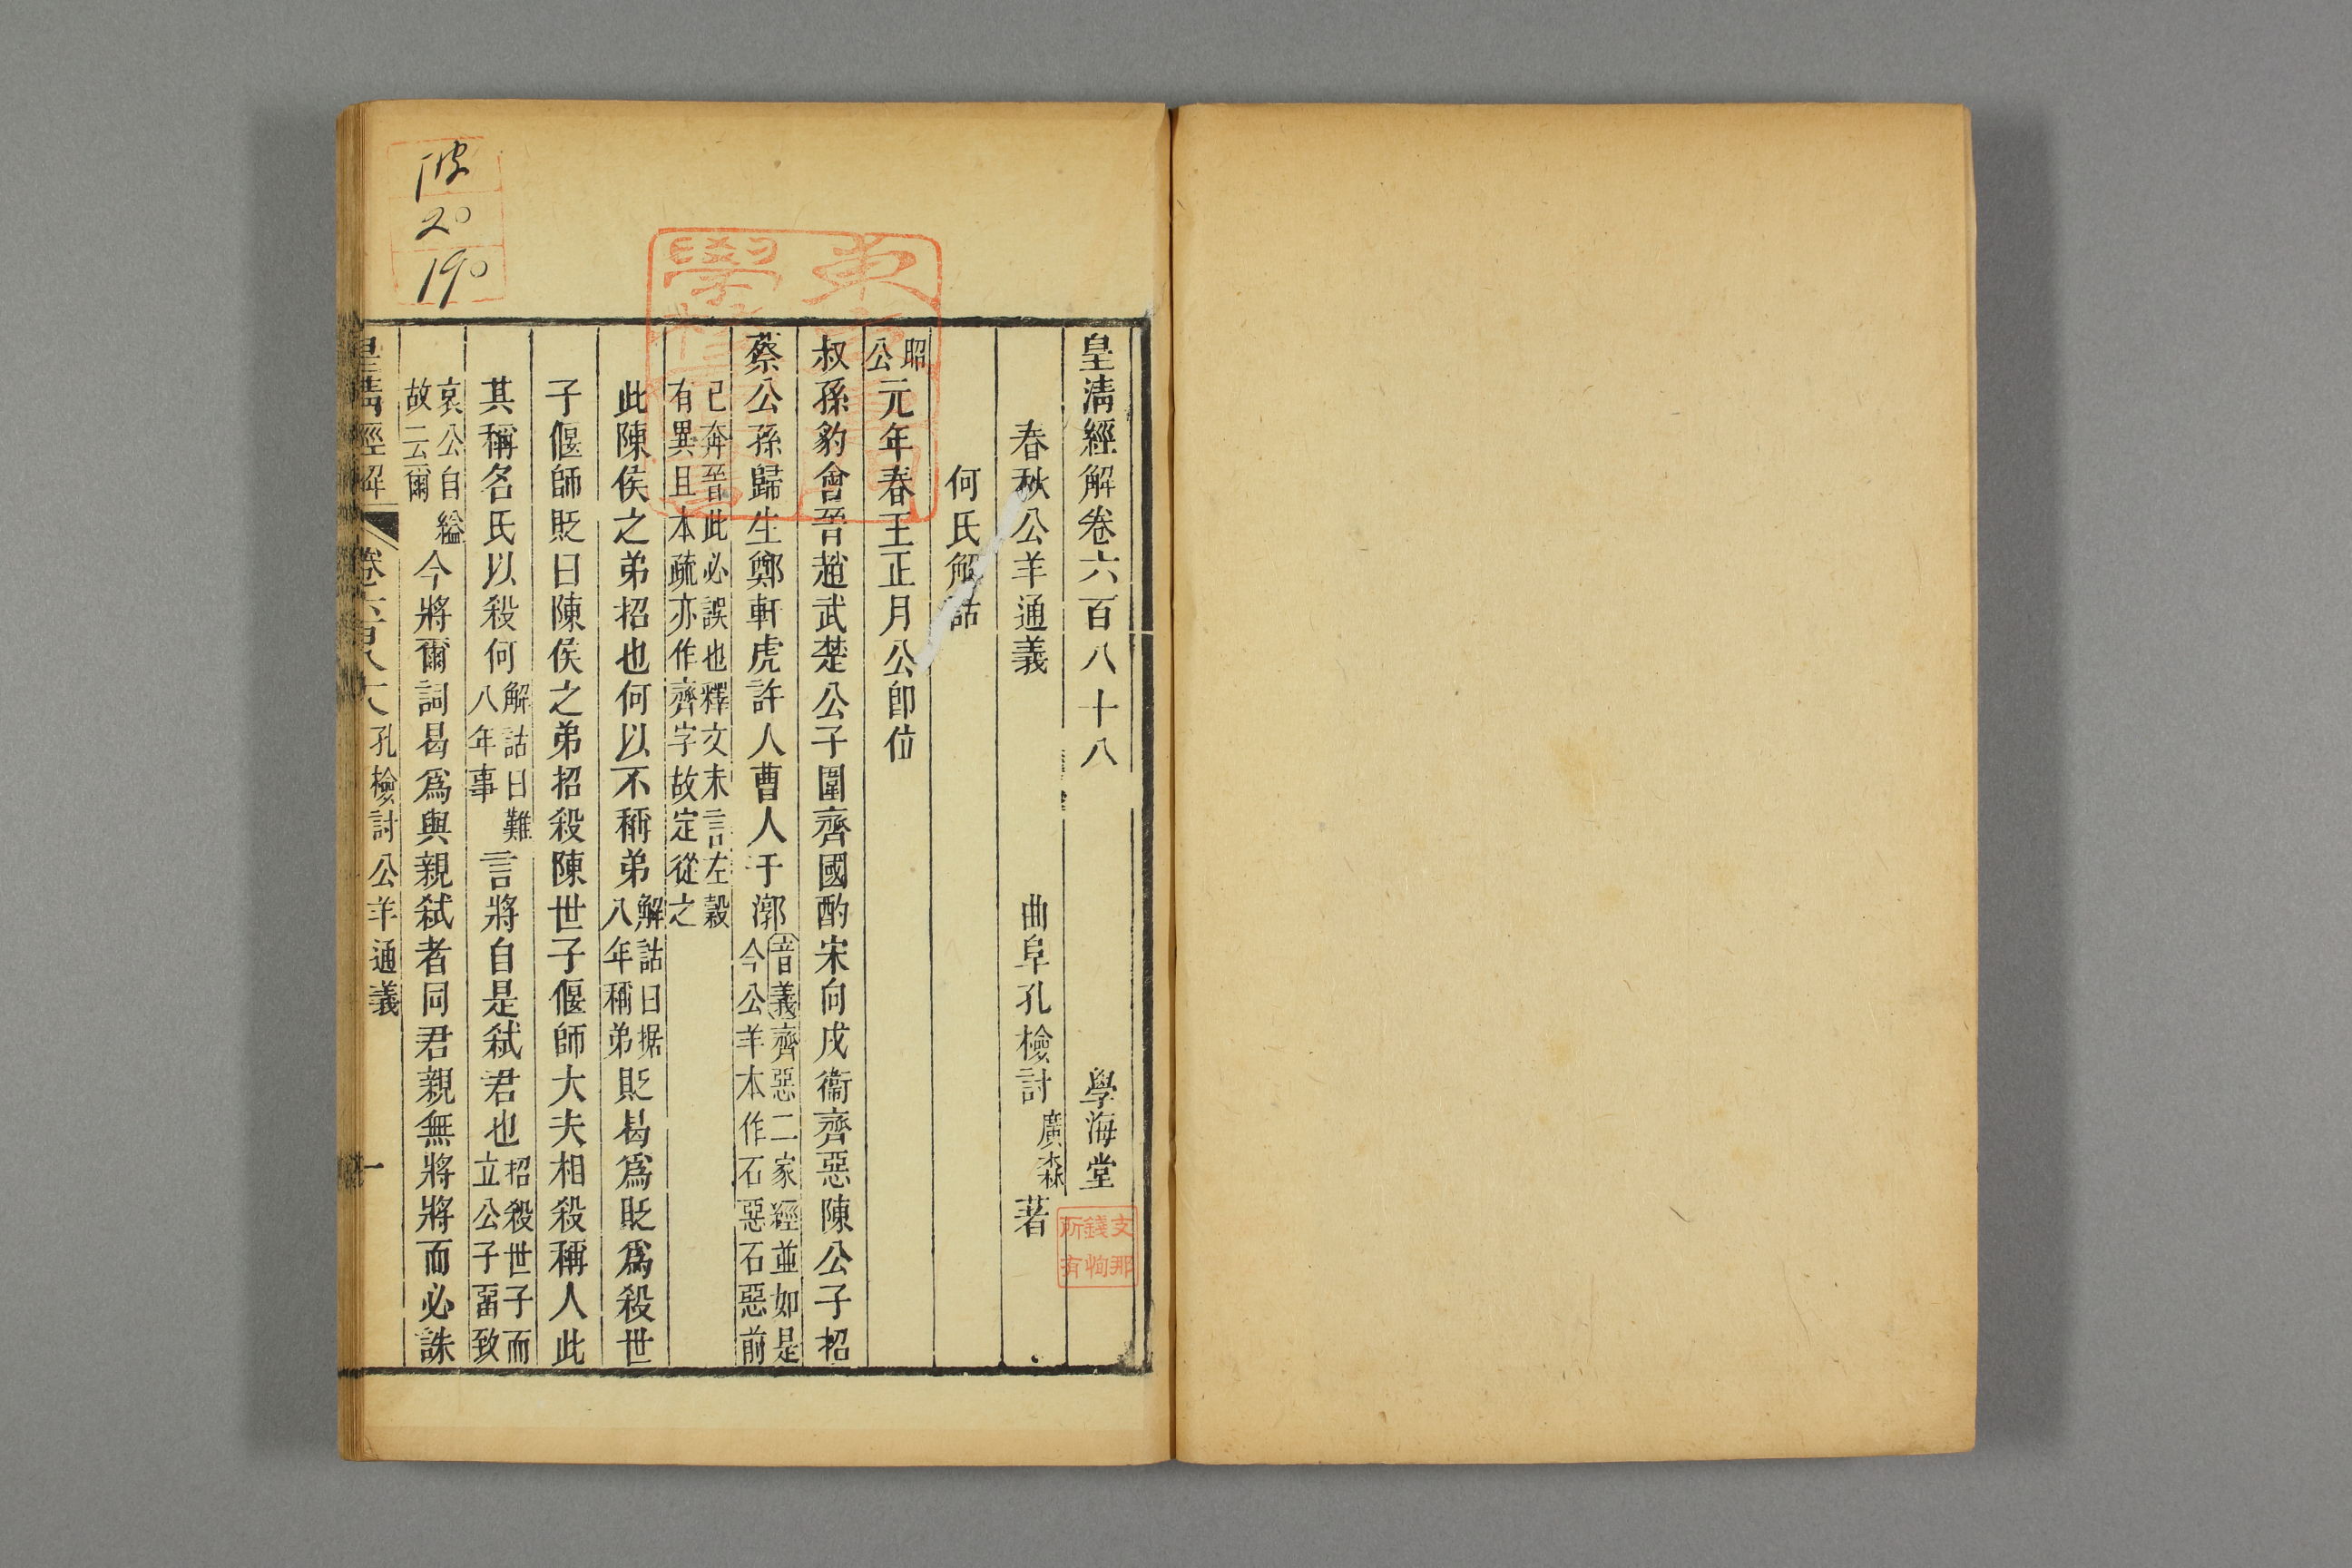 皇清經解卷六百八十八 學海堂
春秋公羊通義 曲阜孔檢討廣森著
何氏解詁
昭公元年春王正月公卽位
叔孫豹會晉趙武楚公子圍齊國酌宋向戌衞齊惡陳公子招
蔡公孫歸生鄭軒虎許人曹人于漷音義齊惡二家經並如是今公羊本作石惡石惡前
已奔晉此必誤也釋文未言左穀有異且本疏亦作齊字故定從之
此陳侯之弟招也何以不稱弟解詁曰据八年稱弟貶曷爲貶爲殺世
子偃師貶曰陳侯之弟招殺陳世子偃師大夫相殺稱人此
其稱名氏以殺何解詁曰難八年事言將自是弑君也招殺世子而立公子畱致
哀公自縊故云爾今將爾詞曷爲與親弑者同君親無將將而必誅
皇清經解 卷六百八十八 孔檢討公羊通義 一
支那錢恂所有
20
190